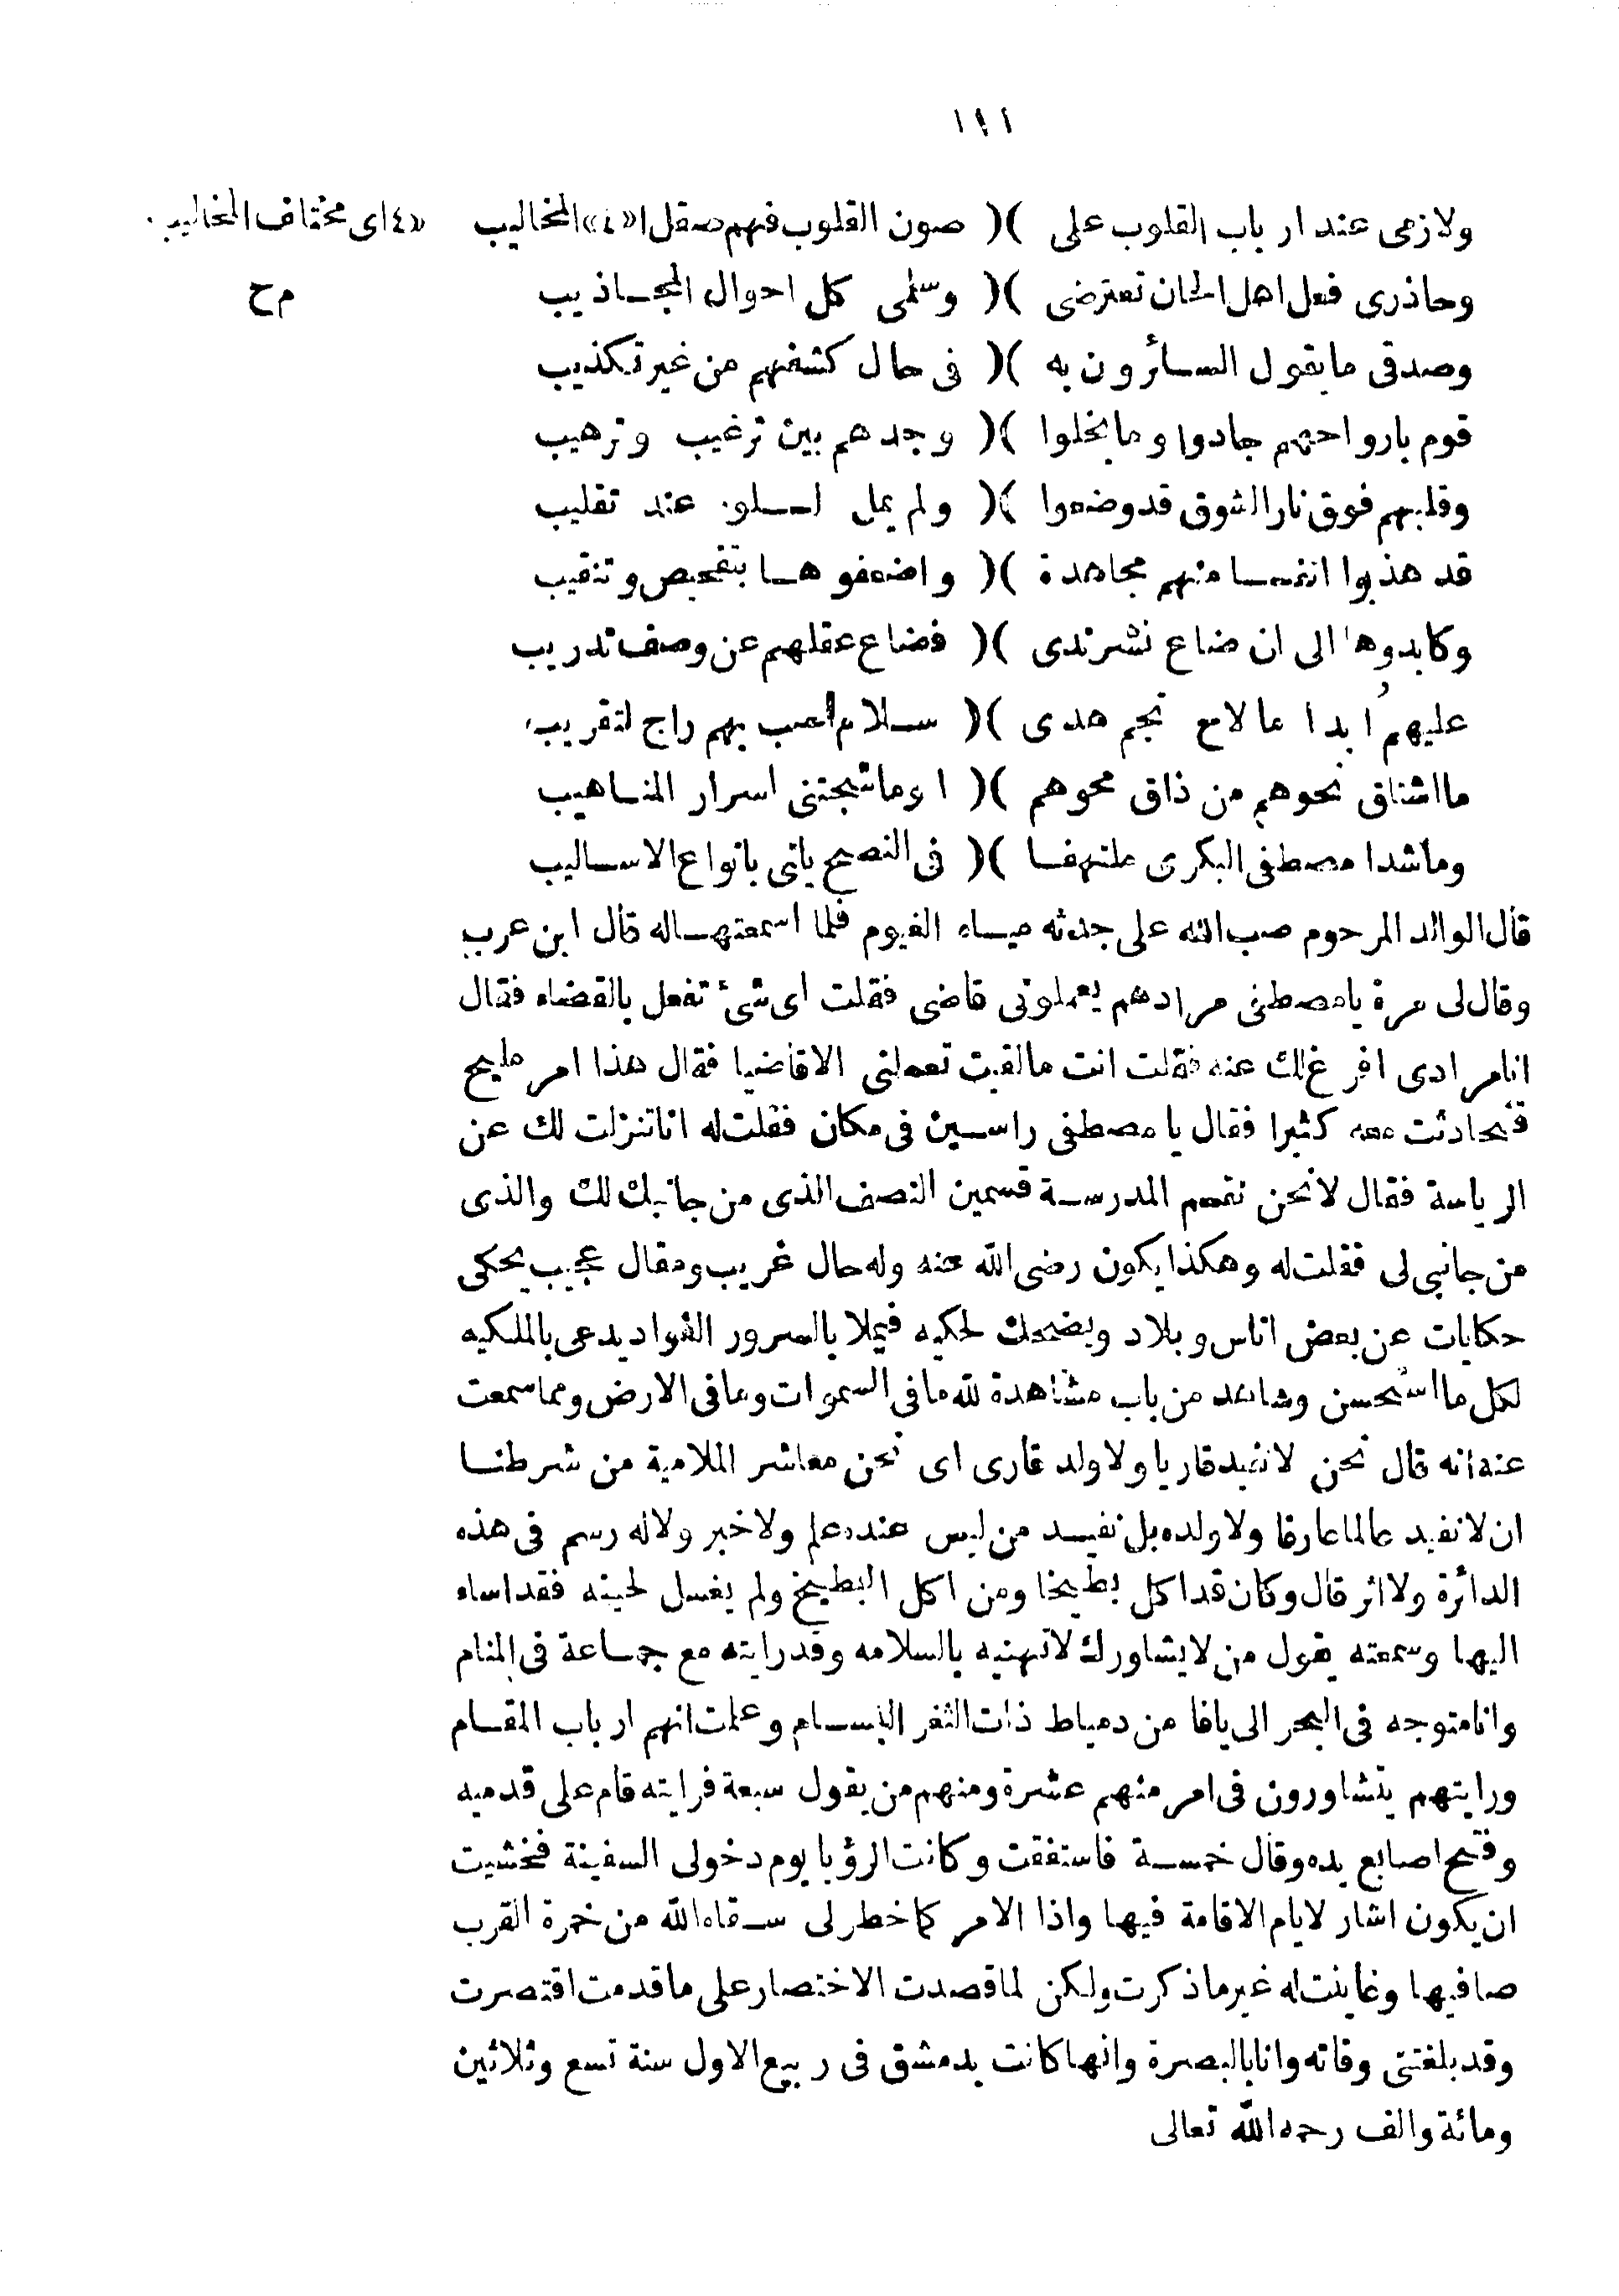 ١٩١
ولازمى عند ار باب القلوب على )( صون القلوب فهم صقل ا «٤» المخاليب «٤ اى مختاف المخاليب.
وحاذرى فعل اهل الحان تعترضى )( وسلمى كل احوال المجـاذيب م ح
وصدقى مايقول السـائرون به )( فى حال كشفهم من غير تكذيب
قوم بارواحهم جادوا وما بخلوا )( وجدهم بين ترغيب وترهيب
وقلبهم فوق نار الشوق قد وضعوا )( ولم يمل لسـلو. عند تقليب
قد هذبوا انفسـا منهم مجاهدة )( واضعفوهـا بتفحيص وتنقيب
وكابدوها الى ان ضاع نشرندى )( فضاع عقلهم عن وصف تدريب
عليهمُ ابدا مالاح نجم هدى )( سـلام صب بهم راج لتقريب
ما اشتاق نحوهم من ذاق محوهم )( او ما شجتنى اسرار المنـاهيب
وماشدا مصطفى البكرى ملتهفـا )( فى النصح يأتى بانواع الاسـاليب
قال الوالد المرحوم صب الله على جدثه ميـاه الفيوم فلما اسمعتهـاله قال ابن عرب
وقال لى مرة يامصطفى مرادهم يعملونى قاضى فقلت اى شئ تفعل بالقضاء فقال
انامرادى افرغ لك عنه فقلت انت مالقيت تعملنى الاقاضيا فقال هذا امر مليح
فتحادثت معه كثيرا فقال يا مصطفى راسـين فى مكان فقلت له اناتنزلت لك عن
الرياسة فقال لانحن نقسم المدرسـة قسمين النصف الذى من جانبك لك والذى
من جانبى لى فقلت له وهكذا يكون رضى الله عنه وله حال غريب ومقال عجيب يحكى
حكايات عن بعض اناس وبلاد ويضحك لحكيه فيملا بالسرور الفواد يدعى بالملكيه
لكل ما استحسن وشاهد من باب مشاهدة لله ما فى السموات وما فى الارض ومما سمعت
عنه انه قال نحن لانفيد قاريا ولا ولد قارى اى نحن معاشر الملامية من شرطنـا
ان لانفيد عالما عارفا ولا ولده بل نفيـد من ليس عنده علم ولا خبر ولا له رسم فى هذه
الدائرة ولا اثر قال وكان قد اكل بطيخا ومن اكل البطيخ ولم يغسل لحيته فقد اساء
اليها وسمعته يقول من لايشاورك لاتهنيه بالسلامه وقدرايته مع جمـاعة فى المنام
وانامتوجه فى البحر الى يافا من دمياط ذات الثغر البسـام وعلمت انهم ارباب المقـام
ورايتهم يتشاورون فى امر منهم عشرة ومنهم من يقول سبعة فرايته قام على قدميه
وفتح اصابع يده وقال خمسـة فاستفقت وكانت الرؤيا يوم دخولى السفينة فخشيت
ان يكون اشار لايام الاقامة فيها واذا الامر كما خطر لى سـقاه الله من خمرة القرب
صافيها وعاينت له غير ما ذكرت ولكن لما قصدت الاختصار على ما قدمت اقتصرت
وقد بلغتنى وفاته وانا بالبصرة وانها كانت بدمشق فى ربيع الاول سنة تسع وثلاثين
ومائة والف رحمه الله تعالى